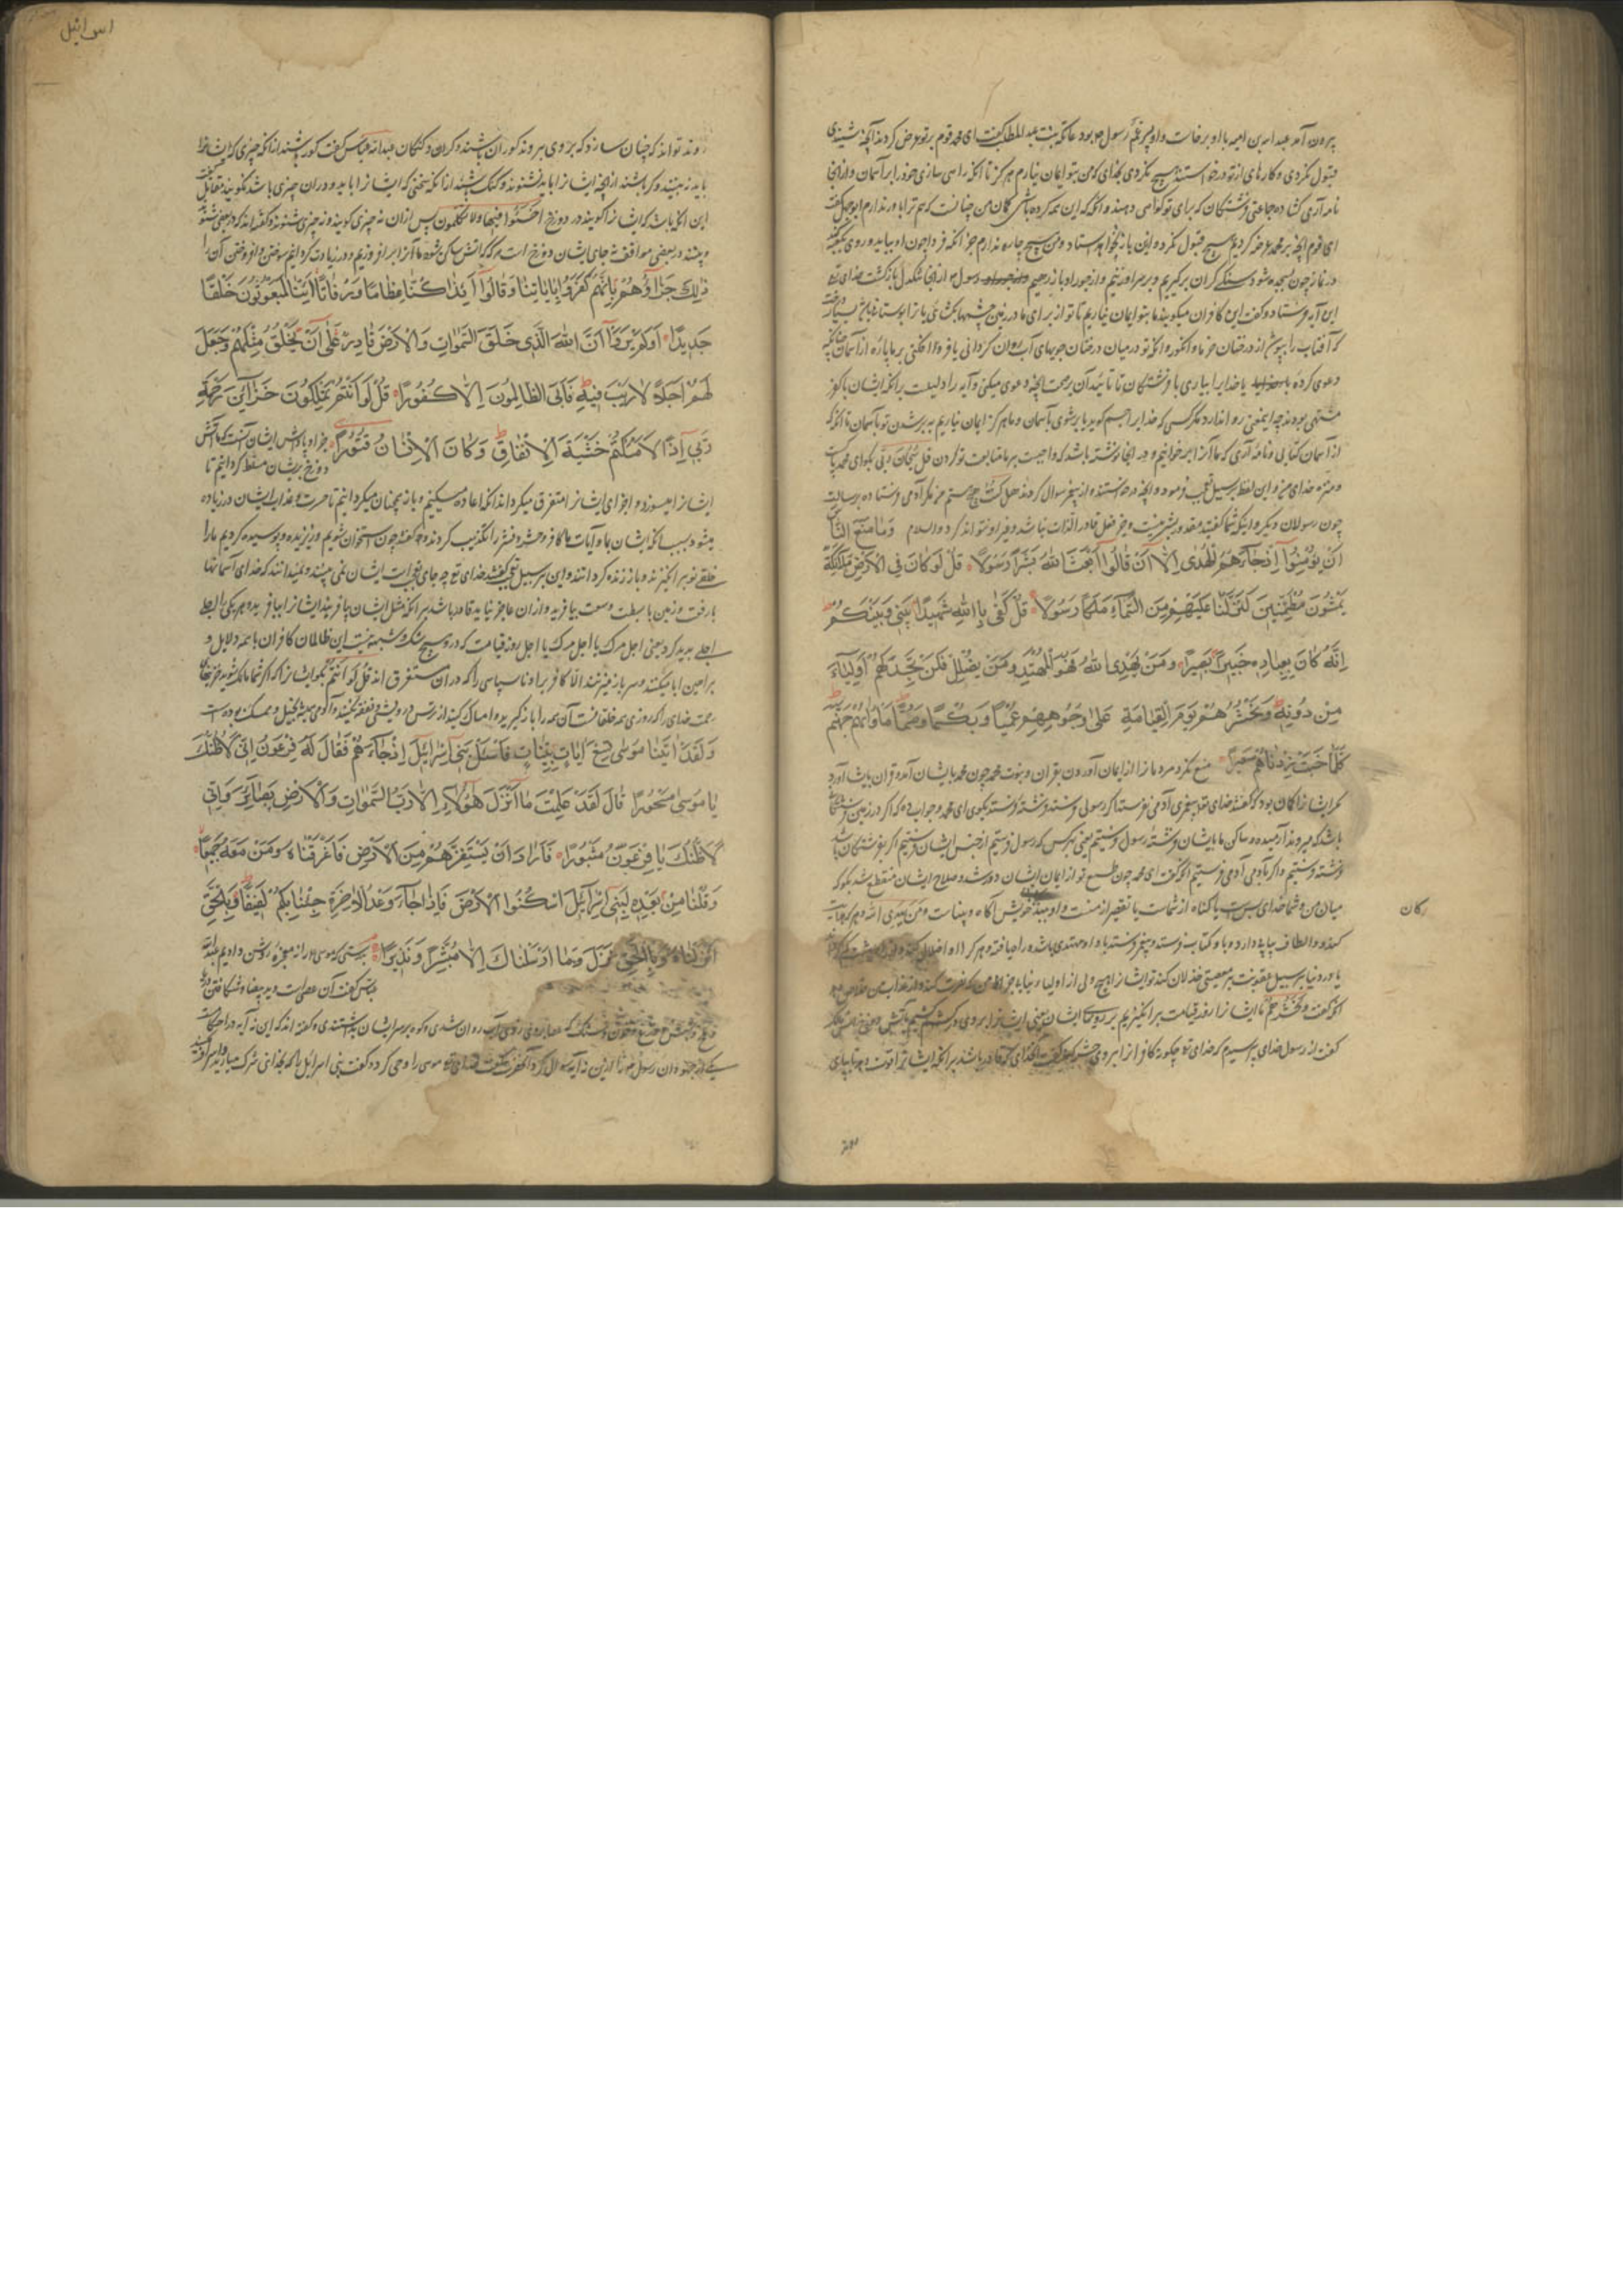 بیرون آمد عبدالله بن امیه با او برخاست و او پسر عمهٔ رسول بود عاتکه بنت عبدالمطلب گفت ای محمد قوم بر تو عرض کردند آنچه شنیدی
قبول نکردی و کارهای از تو درخواستند هیچ نکردی بخدای که من بتو ایمان نیارم هرگز تا آنکه راسی سازی خود را بر آسمان و از آنجا
نامه آری گشاده و جماعتی فرشتگان که برای تو گواهی دهند و آنکه که این همه کرده باشی گمان من چنانست که هم ترا باور ندارم ابوجهل گفت
ای قوم آنچه بر محمد عرضه کردیم هیچ قبول نکرد و این باز نخواهد استاد و من هیچ چاره ندارم جز آنکه فردا چون او بیاید و روی بکعبه کند
در نماز چون بسجده شود سنگی گران برگیریم و بر سر او زنیم و از جور او باز رهیم رسول از آنجا تنگدل بازگشت خدای
این آیه فرستاد و گفت این کافران میگویند ما بتو ایمان نیاریم تا تو از برای ما در زمین چشمها بگشائی یا ترا بوستانی باشد بسیار درخت
که آفتاب را بپوشد از درختان خرما و انگور و آنکه تو در میان درختان جویهای آب روان گردانی یا فرود افکنی بر ما پاره از آسمان چنانکه
دعوی کرده یا خدایرا بیاری با فرشتگان تا تأیید آن بر صحت آنچه دعوی میکنی و آیه را دلیلست بر آنکه ایشان با کفر
مشبهی بودند چه این معنی روا ندارد مگر کسی که خدایرا جسم گوید یا بر شوی بآسمان و ما هرگز ایمان نیاریم به بر شدن تو بآسمان تا آنکه
از آسمان کتابی و نامهٔ آری که ما آنرا برخوانیم و در آنجا نوشته باشد که واجبست بر ما متابعت تو کردن قل سبحان ربی بگو ای محمد پاکست
و منزه خدای من و این لفظ بر سبیل تعجب فرمود و آنچه درخواستند و از پیغمبر سوال کردند هل کنت هیچ هستم من مگر آدمی فرستاده برسالت
چون رسولان دیگر و اینکه شما گفتید مقدور بشر نیست و جز فعل قادر الذات نباشد و غیر او نتواند کرد والسلام وَمَا مَنَعَ النَّاسَ
اَنْ یُؤْمِنُوا اِذْ جَآءَهُمُ الْهُدٰی اِلَّا اَنْ قَالُوا اَبَعَثَ اللهُ بَشَرًا رَسُولًا قُلْ لَوْ كَانَ فِی الْاَرْضِ مَلٰئِكَةٌ
یَمْشُونَ مُطْمَئِنِّینَ لَنَزَّلْنَا عَلَیْهِمْ مِنَ السَّمَآءِ مَلَكًا رَسُولًا قُلْ كَفٰی بِاللهِ شَهِیدًا بَیْنِی وَبَیْنَكُمْ
اِنَّهُ كَانَ بِعِبَادِهِ خَبِیرًا بَصِیرًا وَمَنْ یَهْدِی اللهُ فَهُوَ الْمُهْتَدِ وَمَنْ یُضْلِلْ فَلَنْ تَجِدَ لَهُمْ اَوْلِیَآءَ
مِنْ دُونِهِ وَنَحْشُرُهُمْ یَوْمَ الْقِیَامَةِ عَلٰی وُجُوهِهِمْ عُمْیًا وَبُكْمًا وَصُمًّا مَأْوٰیهُمْ جَهَنَّمُ
كُلَّمَا خَبَتْ زِدْنَاهُمْ سَعِیرًا منع نکرد مردمانرا از ایمان آوردن بقرآن و نبوت محمد چون محمد بایشان آمد و قرآن بایشان آورد
مگر ایشانرا گمان بود که گفتند خدای پیغمبری آدمی نفرستد اگر رسولی فرستد فرشتهٔ فرستد بگوی ای محمد و جواب ده که اگر در زمین فرشتگان
باشند که میروند آرمیده و ساکن ما بایشان فرشتهٔ رسول فرستیم یعنی هر کس که رسول فرستیم از جنس ایشان فرستیم اگر بفرشتگان باشد
فرشته فرستیم و اگر بآدمی آدمی فرستیم آنکه گفت ای محمد چون طمع تو از ایمان ایشان دور شد و صلاح ایشان منقطع شد بگو که
میان من و شما خدای بس است با گناه از شماست یا تقصیر از منست و او ببندگان خویش آگاه و بیناست ومن یهدی الله و هر که هدایت
کان
کند و الطاف پیاپی دارد و با و کتاب فرستد و پیغمبر فرستد با و او مهتدی باشد و راه یافته و هر که را او اضلال کند
یا در دنیا بر سبیل عقوبت بر معصیتی خذلان کند تو ایشانرا هیچ ولی از اولیا نیابی جز من که نصرت کند و از عذاب من خلاص دهد
آنکه گفت ونحشرهم ما ایشانرا روز قیامت برانگیزیم بر رویهای ایشان یعنی ایشانرا بر روی
گفت از رسول خدای پرسیدم که خدای تعالی چگونه کافرانرا بر روی حشر کند گفت آنخدای که قادر باشد بر آنکه ایشانرا قوت دهد تا بپای
اسرائیل
روند تواند که چنان سازد که بروی بروند کوران باشند و کران و گنگان عبدالله عباس گفت کور باشند از آنکه چیزی که ایشانرا
باید نبینند و کر باشند از آنچه ایشانرا باید نشنوند و گنگ باشند از آنکه سخنی که ایشانرا باید و در آن چیزی باشد نگویند مقاتل گفت
این آنگاه باشد که ایشانرا گویند در دوزخ اخسئوا فیها ولا تکلمون پس از آن نه چیزی گویند و نه چیزی شنوند و گفته‌اند که در بعضی شنوند
و بینند در بعضی مواقف جای ایشان دوزخ است هر گه که آتش ساکن شود ما آنرا بر افروزیم و در زیادت کردانیم سوختن و افروختن آن را
ذٰلِكَ جَزَآؤُهُمْ بِاَنَّهُمْ كَفَرُوا بِاٰیَاتِنَا وَقَالُوا اَئِذَا كُنَّا عِظَامًا وَرُفَاتًا اَئِنَّا لَمَبْعُوثُونَ خَلْقًا
جَدِیدًا اَوَلَمْ یَرَوْا اَنَّ اللهَ الَّذِی خَلَقَ السَّمٰوَاتِ وَالْاَرْضَ قَادِرٌ عَلٰی اَنْ یَخْلُقَ مِثْلَهُمْ وَجَعَلَ
لَهُمْ اَجَلًا لَا رَیْبَ فِیهِ فَاَبَی الظَّالِمُونَ اِلَّا كُفُورًا قُلْ لَوْ اَنْتُمْ تَمْلِكُونَ خَزَآئِنَ رَحْمَةِ
رَبِّی اِذًا لَاَمْسَكْتُمْ خَشْیَةَ الْاِنْفَاقِ وَكَانَ الْاِنْسَانُ قَتُورًا جزا و پاداش ایشان آنست که ما آتش
دوزخ بر ایشان مسلط کردانیم تا
ایشانرا میسوزد و اجزای ایشانرا متفرق میکرداند آنکه اعاده میکنیم و باز همچنان میکردانیم تا حسرت و عذاب ایشان در زیاده
میشود بسبب آنکه ایشان بما و آیات ما کافر و حشر و نشر را تکذیب کردند و گفتند چون استخوان شویم و ریزیده و پوسیده کردیم ما را
خلقی نو برانگیزند و باز زنده کردانند و این بر سبیل تعجب گفتند خدای تعالی چه جای تعجب است ایشان نمی‌بینند و نمیدانند که خدای آسمانها
با رفعت و زمین با بسطت و سعت بیافرید و از آن عاجز نیاید قادر باشد بر آنکه مثل ایشان بیافریند ایشانرا بیافرید و هر یکی را اجلی
اجلی پدید کرد یعنی اجل مرگ یا اجل مرگ یا اجل روز قیامت که در و هیچ شک و شبهه نیست این ظالمان کافران با همه دلایل و
براهین ابا میکنند و سر باز میزنند الا کافری و ناسپاسی را که در آن مستغرق‌اند قل لو انتم بگو ایشانرا که اگر شما مالک شوید خزینهای
رحمت خدای را که روزی همه خلقانست آن همه را بازگیرید و امساک کنید از ترس درویشی و نفقه نکنید و آدمی همیشه بخیل و ممسک بوده است
وَلَقَدْ اٰتَیْنَا مُوسٰی تِسْعَ اٰیَاتٍ بَیِّنَاتٍ فَاسْئَلْ بَنِی اِسْرَآئِیلَ اِذْ جَآءَهُمْ فَقَالَ لَهُ فِرْعَوْنُ اِنِّی لَاَظُنُّكَ
یَا مُوسٰی مَسْحُورًا قَالَ لَقَدْ عَلِمْتَ مَا اَنْزَلَ هٰؤُلَآءِ اِلَّا رَبُّ السَّمٰوَاتِ وَالْاَرْضِ بَصَآئِرَ وَاِنِّی
لَاَظُنُّكَ یَا فِرْعَوْنُ مَثْبُورًا فَاَرَادَ اَنْ یَسْتَفِزَّهُمْ مِنَ الْاَرْضِ فَاَغْرَقْنَاهُ وَمَنْ مَعَهُ جَمِیعًا
وَقُلْنَا مِنْ بَعْدِهِ لِبَنِی اِسْرَآئِیلَ اسْكُنُوا الْاَرْضَ فَاِذَا جَآءَ وَعْدُ الْاٰخِرَةِ جِئْنَا بِكُمْ لَفِیفًا وَبِالْحَقِّ
اَنْزَلْنَاهُ وَبِالْحَقِّ نَزَلَ وَمَا اَرْسَلْنَاكَ اِلَّا مُبَشِّرًا وَنَذِیرًا بدرستی که موسی را نه معجزه روشن دادیم عبدالله
عباس گفت آن عصاست و ید بیضا و شکافتن دریا
و سنگ که عصا بر وی زدی آب روان شدی و کوه بر سر ایشان بداشتندی و گفته‌اند که این نه آیه در احکامست
یکی از جهودان رسول را از این نه آیه سوال کرد آنحضرت گفت خدای تعالی موسی را وحی کرد و گفت بنی اسرائیل را که بخدای شرک میارید